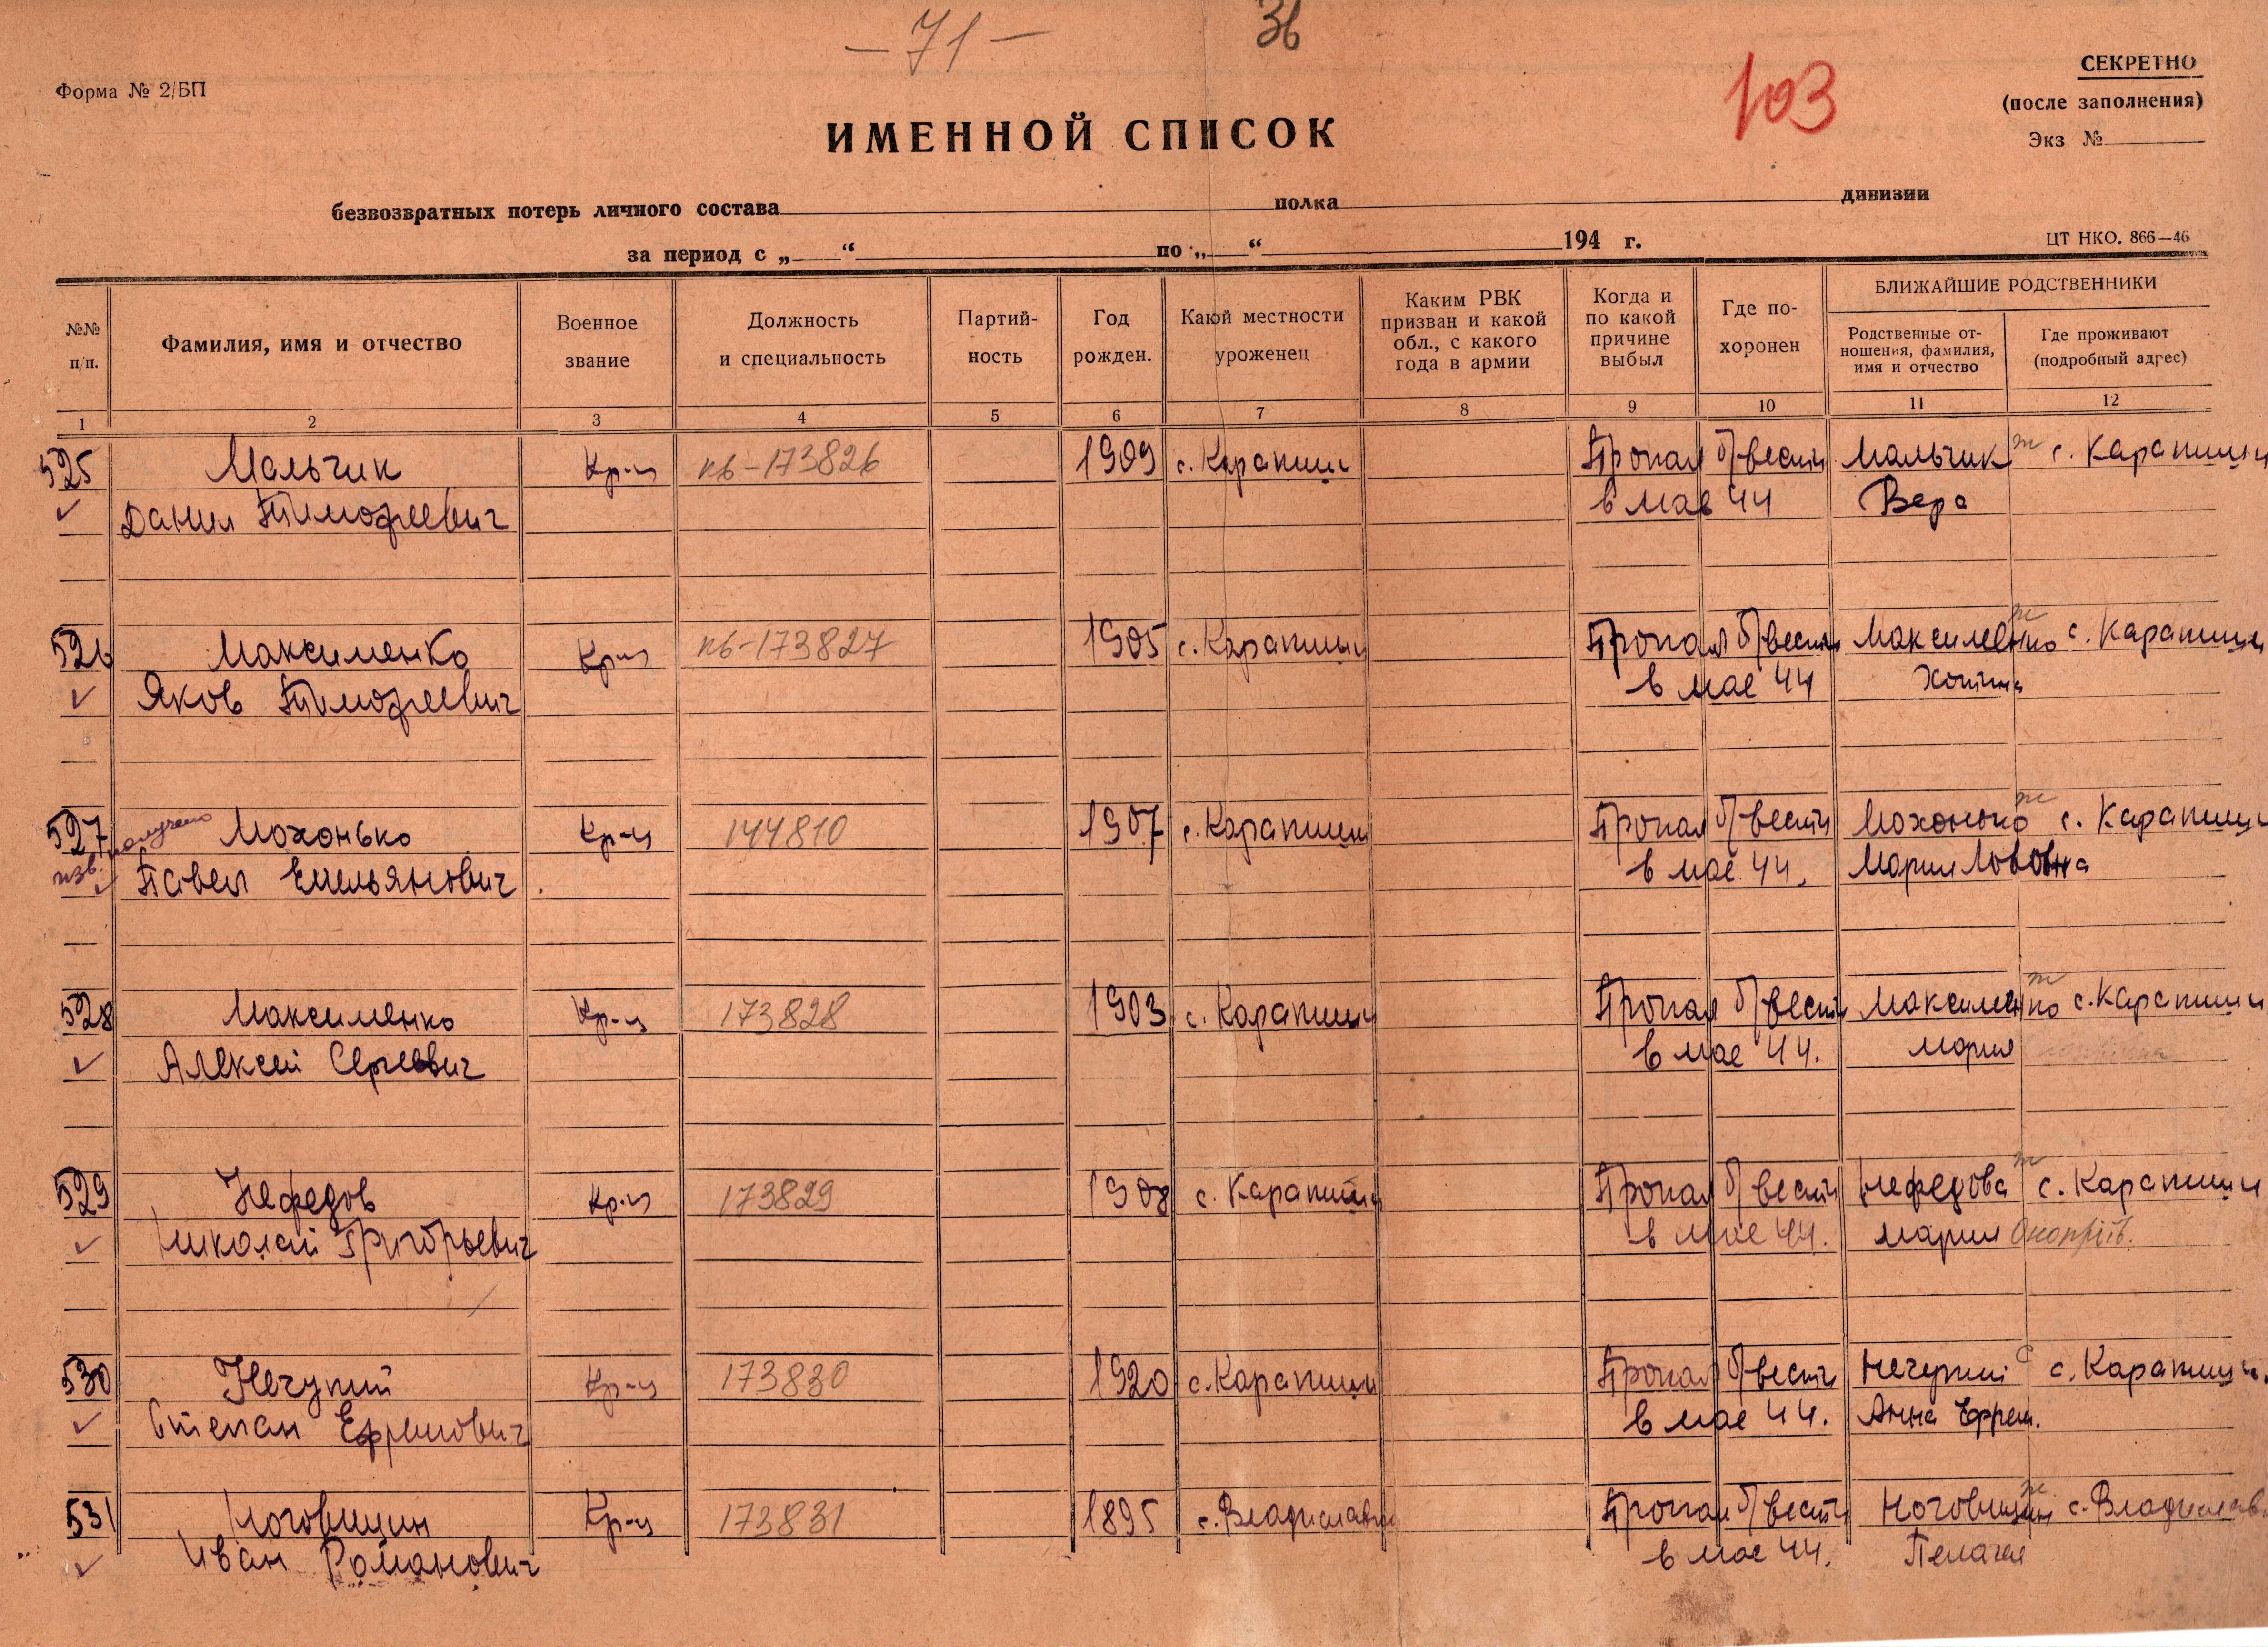 — 71 — 36
103
СЕКРЕТНО
(после заполнения)
Экз №
Форма № 2/БП
ИМЕННОЙ СПИСОК
безвозвратных потерь личного состава полка дивизии
за период с „ “ по „ “ 194 г.
ЦТ НКО. 866—46
№№ п/п.
Фамилия, имя и отчество
Военное звание
Должность и специальность
Партий-
ность
Год рожден.
Какой местности уроженец
Каким РВК
призван и какой
обл., с какого
года в армии
Когда и
по какой
причине
выбыл
Где по-
хоронен
БЛИЖАЙШИЕ РОДСТВЕННИКИ
Родственные от-
ношения, фамилия,
имя и отчество
Где проживают
(подробный адрес)
1 2 3 4 5 6 7 8 9 10 11 12
525 Мальчик Кр-ц пв-173826 1909 с. Карапиши Пропал б/вести Мальчик ж с. Карапиши
Данил Тимофеевич в мае 44 Вера
526 Максименко Кр-ц пв-173827 1905 с. Карапиши Пропал б/вести Максименко ж с. Карапиши
Яков Тимофеевич в мае 44
527 получено Мохонько Кр-ц 144810 1907 с. Карапиши Пропал б/вести Мохонько ж с. Карапиши
изв. Павел Емельянович в мае 44. Мария
528 Максименко Кр-ц 173828 1903 с. Карапиши Пропал б/вести Максименко ж с. Карапиши
Алексей Сергеевич в мае 44. Мария
529 Нефедов Кр-ц 173829 1908 с. Карапиши Пропал б/вести Нефедова ж с. Карапиши
Николай Григорьевич в мае 44. Мария
530 Нечупий Кр-ц 173830 1920 с. Карапиши Пропал б/вести с с. Карапиши
Степан Ефремович в мае 44. Анна Ефрем.
531 Ноговицин Кр-ц 173831 1895 с. Пропал б/вести Ноговицин ж с.
Иван Романович в мае 44. Пелагея